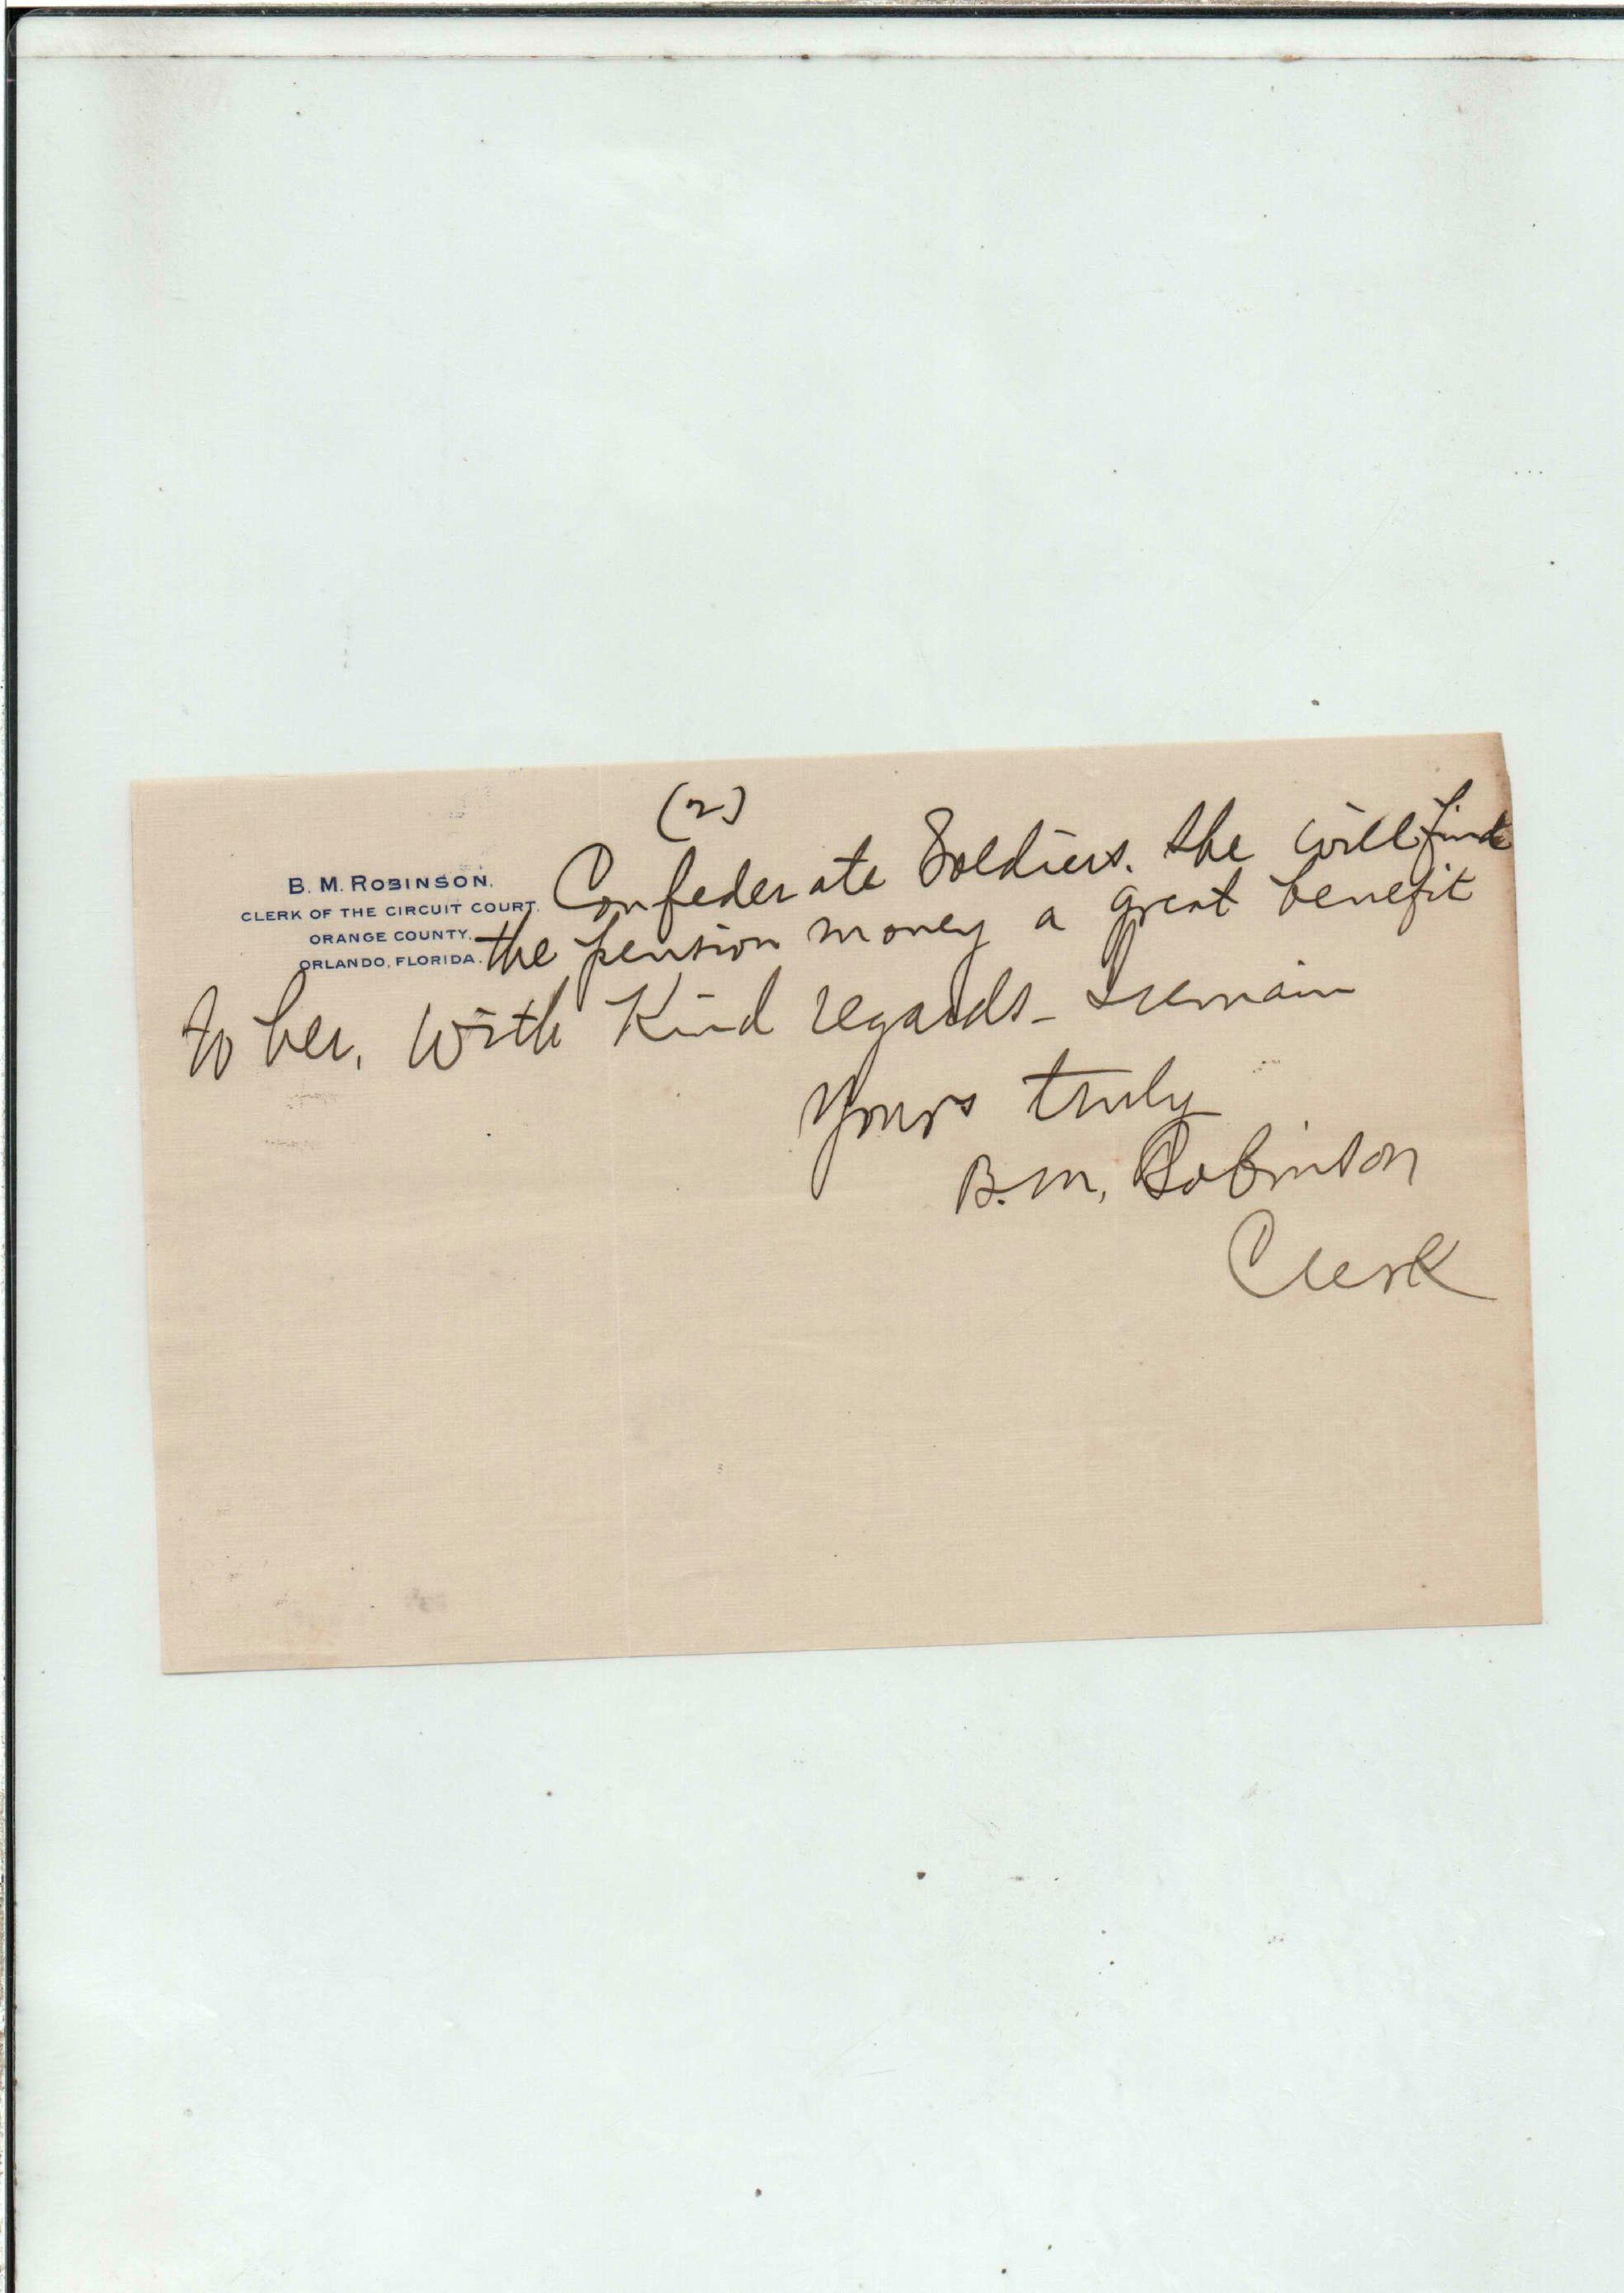 (2)
B. M. ROBINSON,
CLERK OF THE CIRCUIT COURT.
ORANGE COUNTY,
ORLANDO, FLORIDA.
Confederate Soldiers. She will find
the pension money a great benefit
to her. With Kind regards - I remain
Yours truly
B. M. Robinson
Clerk